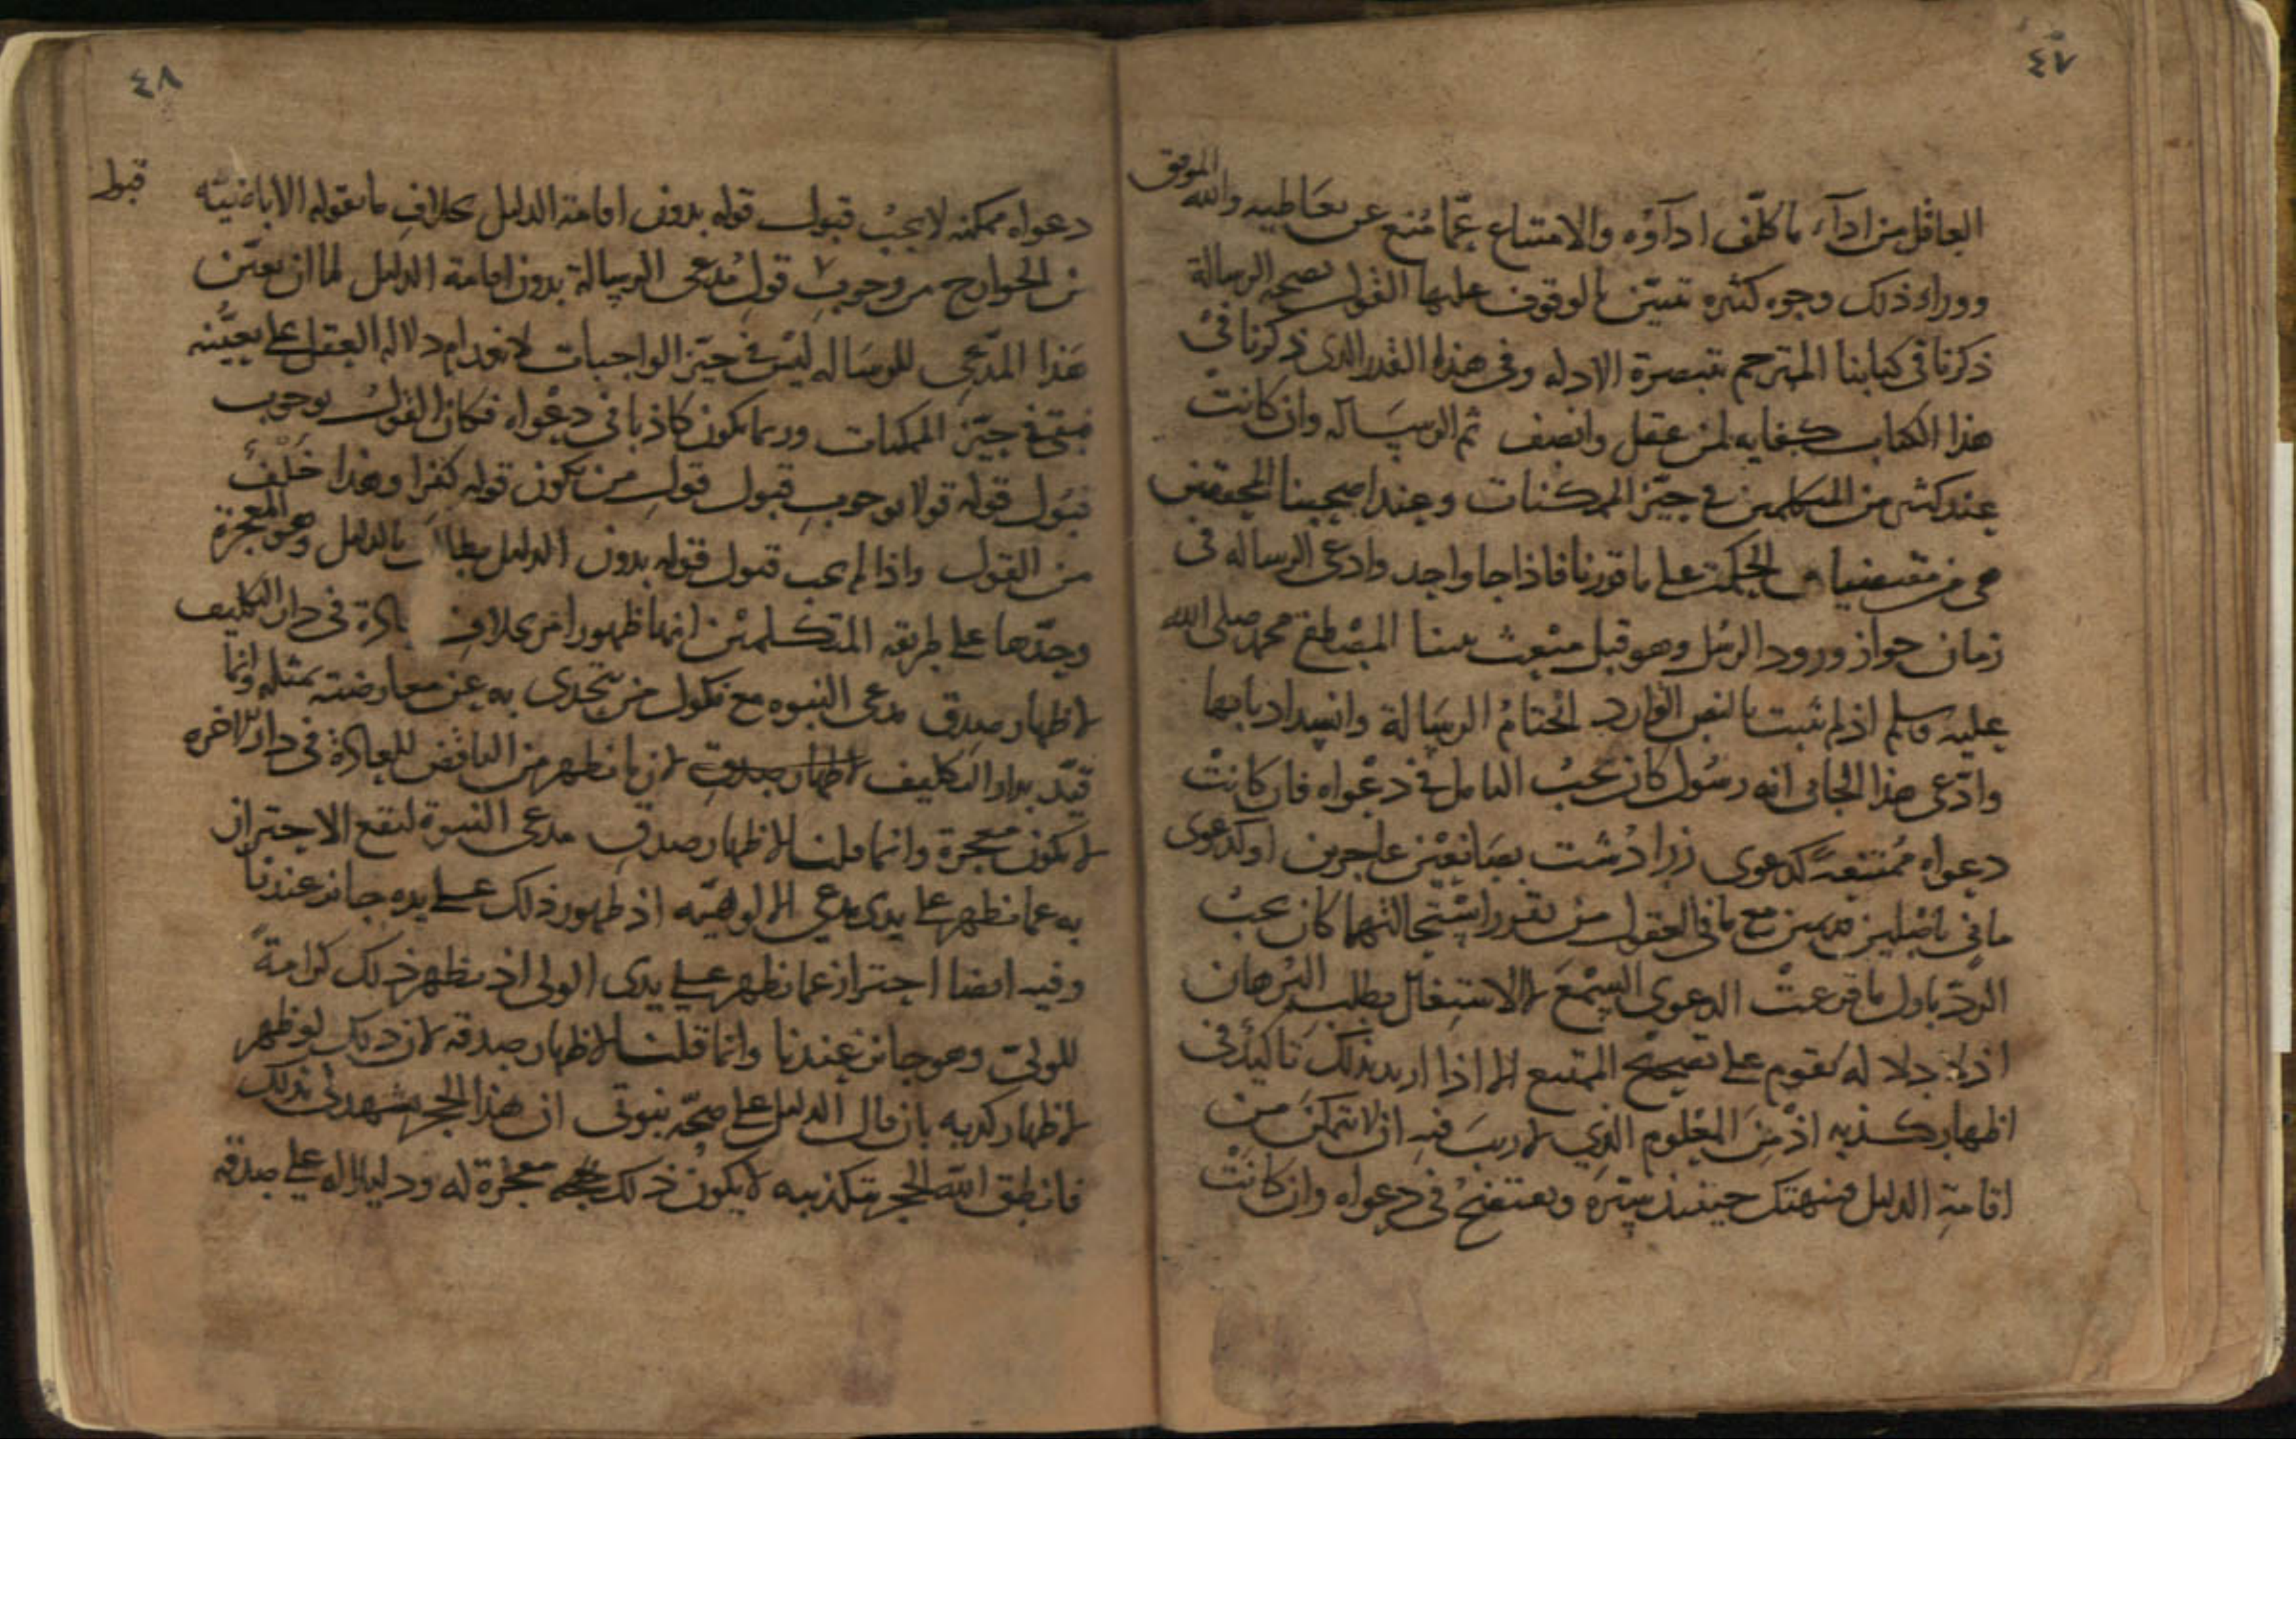 ٤٧
العاقل من ادآء ما كلّف ادآؤه والامتناع عمّا مُنع عن تعاطيه والله الموفق
ووراء ذلك وجوه كثيره تتبيّن بالوقوف عليها القول بصحه الرسالة
ذكرنا في كتابنا المترجم بتبصرة الادله وفي هذا القدر الذي ذكرنا في
هذا الكتاب كفايه لمن عقل وانصف ثم الرسالة وان كانت
عند كثير من المتكلمين في حيّز الممكنات وعند اصحبنا المحققين
هي من مقتضيات الحكمة على ما قررنا فاذا جا واحد وادعى الرساله في
زمان جواز ورود الرسُل وهو قبل مبْعث نبينا المصْطفى محمد صلى الله
عليه وسلم اذ لم يثبت بالنص الوارد انختامُ الرسَالة وانسداد بابها
وادّعى هذا الجائى انه رسُول كان يجبُ التامل في دعْواه فان كانتْ
دعواه مُمتنعةً كدعوى زرادُشت بصَانعيْن عاجزين او كدعوى
مانى باصْلين قديمين مع ما في العقول من تقرر استحالتهما كان يجبُ
الردّ باول ما قرعتْ الدعوى السمْعَ لا الاشتغال بطلب البرْهان
اذ لا دلاله تقوم على تصحيح الممتنع الا اذا اريد بذلك تاكيدٌ في
اظهار كذبه اذ مِنَ المعْلوم الذي لا ريبَ فيه ان لا يتمكنَ من
اقامةِ الدليل فينهتك حينئذ سِترَه ويفتضحُ في دعواه وان كانتْ
٤٨
دعواه ممكنه لا يجبُ قبول قوله بدون اقامة الدليل بخلافِ ما يقوله الاباضيّه
من الخوارج من وجوبِ قولِ مُدعى الرسالة بدون اقامة الدليل لما ان تعيّن
قبول
هَذا المدّعى للرسَاله ليْس في حيّز الواجبات لانعدام دلاله العقل على تعيُّنه
فبقي في حيّز الممكنات وربما يكون كاذبا في دعْواه فكان القولُ بوجوب
قبُول قوله قولا بوجوبِ قبول قولِ من يكون قوله كفرا وهذا خَلْفٌ
من القول واذا لم يجب قبول قوله بدون الدليل يطالَب بالدليل وهو المعجزة
وحدّها على طريقه المتكلمين انها ظهور امر بخلافِ العادة في دار التكليف
لاظهار صدق مدعى النبوه مع نكول من يتحدى به عن معارضته بمثله وانما
قيّد بدار التكليف لاظهار صدق لان ما يظهر من الناقض للعادة في دار الاخره
لا يكون معجزة وانما قلنا لاظهار صدقِ مدعى النبوة ليقع الاحتراز
به عما يظهر على يدى مدعي الالوهيّه اذ ظهور ذلك على يده جائز عندنا
وفيه ايضا احتراز عما يظهر على يدى الولى اذ يظهر ذلك كرامةً
للولىّ وهو جائز عندنا وانما قلنا لاظهار صدقه لان ذلك لو ظهر
لاظهار كذبه بان قال الدليل على صحّه نبوتى ان هذا الحجر يشهد لى بذلك
فانطق الله الحجر بتكذيبه لا يكون ذلك معجزة له ودليلا له على صدقه